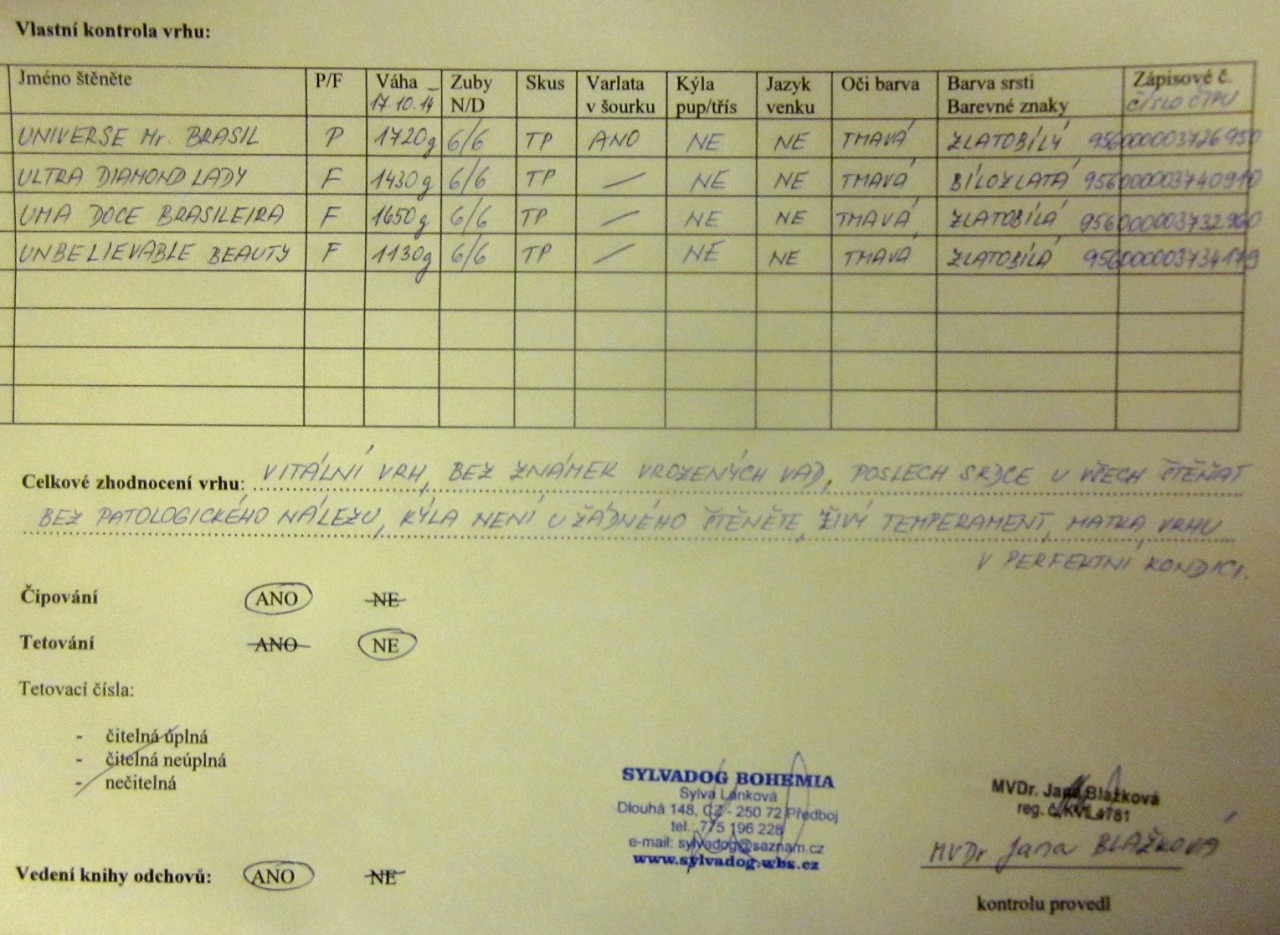 Vlastní kontrola vrhu:
Jméno štěněte P/F Váha 17.10.14 Zuby N/D Skus Varlata v šourku Kýla pup/třís Jazyk venku Oči barva Barva srsti Barevné znaky Zápisové č. ČÍSLO ČIPU
UNIVERSE Mr. BRASIL P 1720g 6/6 TP ANO NE NE TMAVÁ ZLATOBÍLÝ 956000003726950
ULTRA DIAMOND LADY F 1430g 6/6 TP — NE NE TMAVÁ BÍLOZLATÁ 956000003740910
UMA DOCE BRASILEIRA F 1650g 6/6 TP — NE NE TMAVÁ ZLATOBÍLÁ 956000003732960
UNBELIEVABLE BEAUTY F 1130g 6/6 TP — NE NE TMAVÁ ZLATOBÍLÁ 956000003734179
Celkové zhodnocení vrhu: VITÁLNÍ VRH, BEZ ZNÁMEK VROZENÝCH VAD, POSLECH SRDCE U VŠECH ŠTĚŇAT
BEZ PATOLOGICKÉHO NÁLEZU, KÝLA NENÍ U ŽÁDNÉHO ŠTĚNĚTE, ŽIVÝ TEMPERAMENT, MATKA VRHU
V PERFEKTNÍ KONDICI.
Čipování ANO NE
Tetování ANO NE
Tetovací čísla:
- čitelná úplná
- čitelná neúplná
- nečitelná
SYLVADOG BOHEMIA
Sylva Lánková
Dlouhá 148, CZ - 250 72 Předboj
tel.: 775 196 228
e-mail: sylvadog@seznam.cz
www.sylvadog.wbs.cz
MVDr. Jana Blažková
reg. č. KVL 4781
MVDr Jana BLAŽKOVÁ
Vedení knihy odchovů: ANO NE
kontrolu provedl